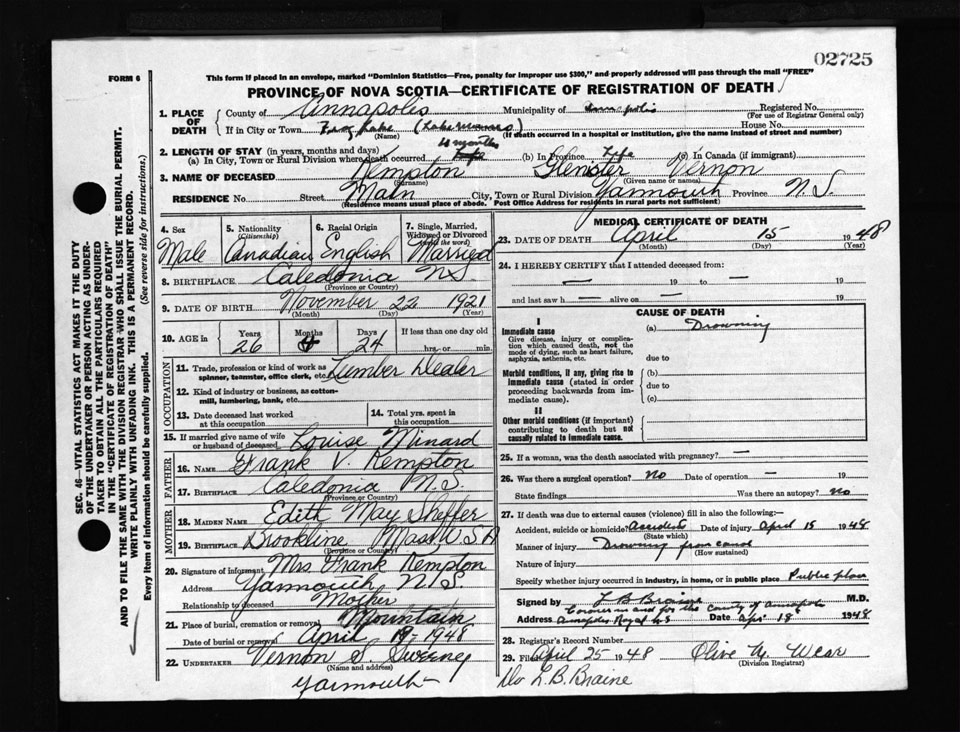 02725
FORM 6
This form if placed in an envelope, marked "Dominion Statistics—Free, penalty for improper use $300," and properly addressed will pass through the mail "FREE"
PROVINCE OF NOVA SCOTIA—CERTIFICATE OF REGISTRATION OF DEATH
1. PLACE OF DEATH
County of Annapolis Municipality of Annapolis Registered No.
(For use of Registrar General only)
If in City or Town Lake (Lake Munro) House No.
(Name) (If death occurred in a hospital or institution, give the name instead of street and number)
2. LENGTH OF STAY (in years, months and days) 4 months
(a) In City, Town or Rural Division where death occurred (b) In Province Life (c) In Canada (if immigrant)
3. NAME OF DECEASED Kempton Glenster Vernon
(Surname) (Given name or names)
RESIDENCE No. Street Main City, Town or Rural Division Yarmouth Province N.S.
(Residence means usual place of abode. Post Office Address for residents in rural parts not sufficient)
4. Sex Male
5. Nationality (Citizenship) Canadian
6. Racial Origin English
7. Single, Married, Widowed or Divorced (write the word) Married
8. BIRTHPLACE Caledonia NS
(Province or Country)
9. DATE OF BIRTH November 22 1921
(Month) (Day) (Year)
10. AGE in Years 26 Months 4 Days 24 If less than one day old hrs. or min.
OCCUPATION
11. Trade, profession or kind of work as spinner, teamster, office clerk, etc. Lumber Dealer
12. Kind of industry or business, as cotton-mill, lumbering, bank, etc.
13. Date deceased last worked at this occupation
14. Total yrs. spent in this occupation
15. If married give name of wife or husband of deceased Louise Minard
FATHER
16. NAME Frank V. Kempton
17. BIRTHPLACE Caledonia N.S.
(Province or Country)
MOTHER
18. MAIDEN NAME Edith May Sheffer
19. BIRTHPLACE Brookline Mass U S A
(Province or Country)
20. Signature of informant Mrs Frank Kempton
Address Yarmouth N.S.
Relationship to deceased Mother
21. Place of burial, cremation or removal Mountain
Date of burial or removal April 19 - 1948
22. UNDERTAKER Vernon S. Sweeney
(Name and address)
Yarmouth
MEDICAL CERTIFICATE OF DEATH
23. DATE OF DEATH April 15 1948
(Month) (Day) (Year)
24. I HEREBY CERTIFY that I attended deceased from:
— 19 to — 19
and last saw h — alive on — 19
CAUSE OF DEATH
I
Immediate cause
Give disease, injury or complication which caused death, not the mode of dying, such as heart failure, asphyxia, asthenia, etc.
(a) Drowning
due to
Morbid conditions, if any, giving rise to immediate cause (stated in order proceeding backwards from immediate cause).
(b)
due to
(c)
II
Other morbid conditions (if important) contributing to death but not causally related to immediate cause.
25. If a woman, was the death associated with pregnancy? —
26. Was there a surgical operation? No Date of operation — 19
State findings Was there an autopsy? No
27. If death was due to external causes (violence) fill in also the following:
Accident, suicide or homicide? Accident Date of injury April 15 1948
(State which)
Manner of injury Drowning from canoe
(How sustained)
Nature of injury
Specify whether injury occurred in industry, in home, or in public place Public place
Signed by L B Braine M.D.
Coroner in and for the County of Annapolis
Address Annapolis Royal NS Date Apr 18 1948
28. Registrar's Record Number
29. Filed April 25 1948 Olive M. Wear
(Division Registrar)
Dr L.B. Braine
SEC. 46—VITAL STATISTICS ACT MAKES IT THE DUTY
OF THE UNDERTAKER OR PERSON ACTING AS UNDER-
TAKER TO OBTAIN ALL THE PARTICULARS REQUIRED
IN THE "CERTIFICATE OF REGISTRATION OF DEATH"
AND TO FILE THE SAME WITH THE DIVISION REGISTRAR WHO SHALL ISSUE THE BURIAL PERMIT.
WRITE PLAINLY WITH UNFADING INK. THIS IS A PERMANENT RECORD.
Every item of information should be carefully supplied. (See reverse side for instructions.)